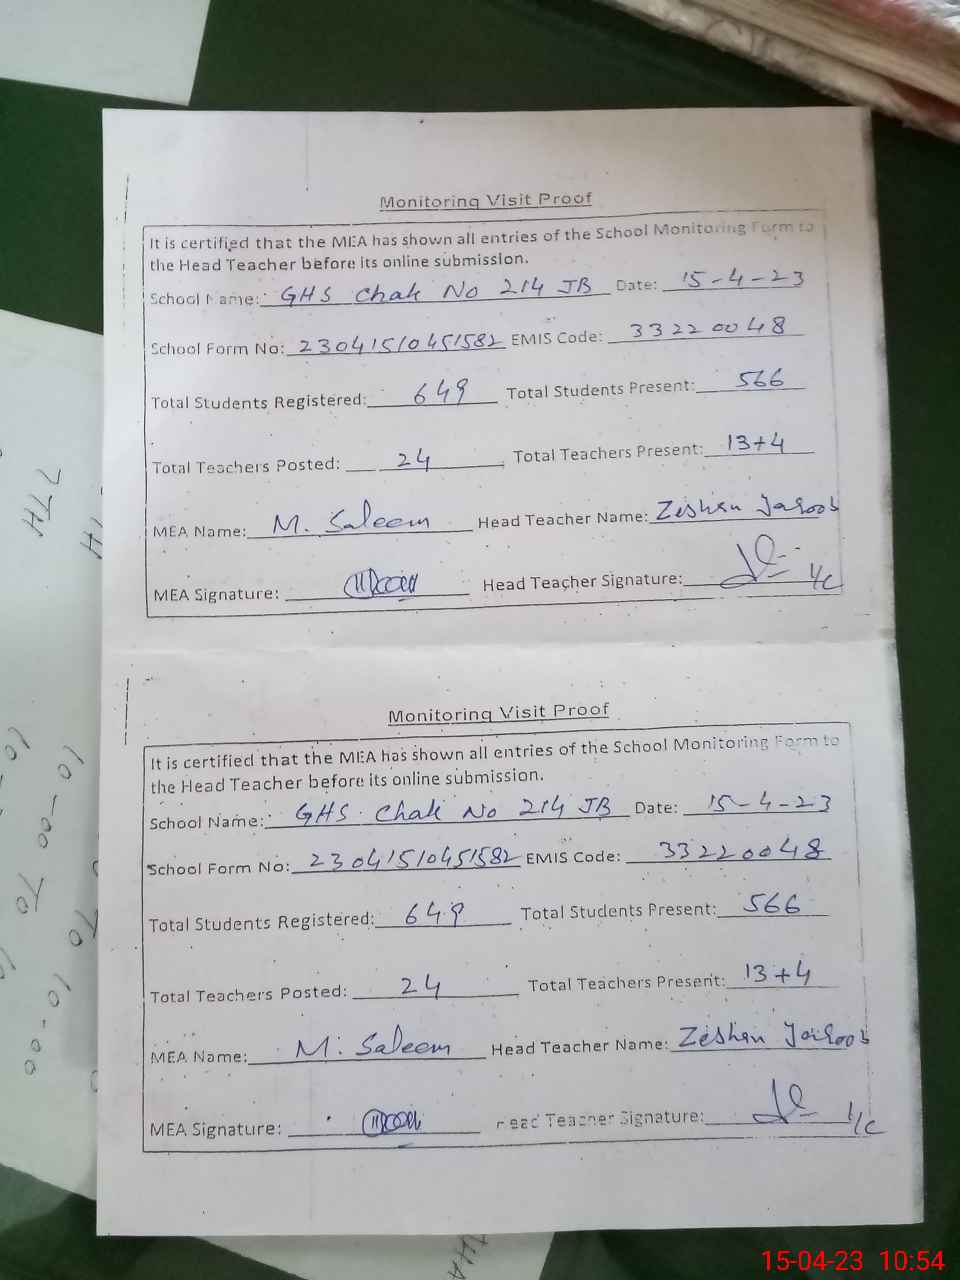 Monitoring Visit Proof
It is certified that the MEA has shown all entries of the School Monitoring Form to
the Head Teacher before its online submission.
School Name: GHS Chak No 214 JB Date: 15-4-23
School Form No: 23041510451582 EMIS Code: 33220048
Total Students Registered: 649 Total Students Present: 566
Total Teachers Posted: 24 Total Teachers Present: 13+4
MEA Name: M. Saleem Head Teacher Name: Zeshan
MEA Signature: Head Teacher Signature: I/C
Monitoring Visit Proof
It is certified that the MEA has shown all entries of the School Monitoring Form to
the Head Teacher before its online submission.
School Name: GHS. Chak No 214 JB Date: 15-4-23
School Form No: 23041510451582 EMIS Code: 33220048
Total Students Registered: 649 Total Students Present: 566
Total Teachers Posted: 24 Total Teachers Present: 13+4
MEA Name: M. Saleem Head Teacher Name: Zeshan
MEA Signature: Head Teacher Signature: I/C
7TH
10-00 TO
TO 10-00
15-04-23 10:54